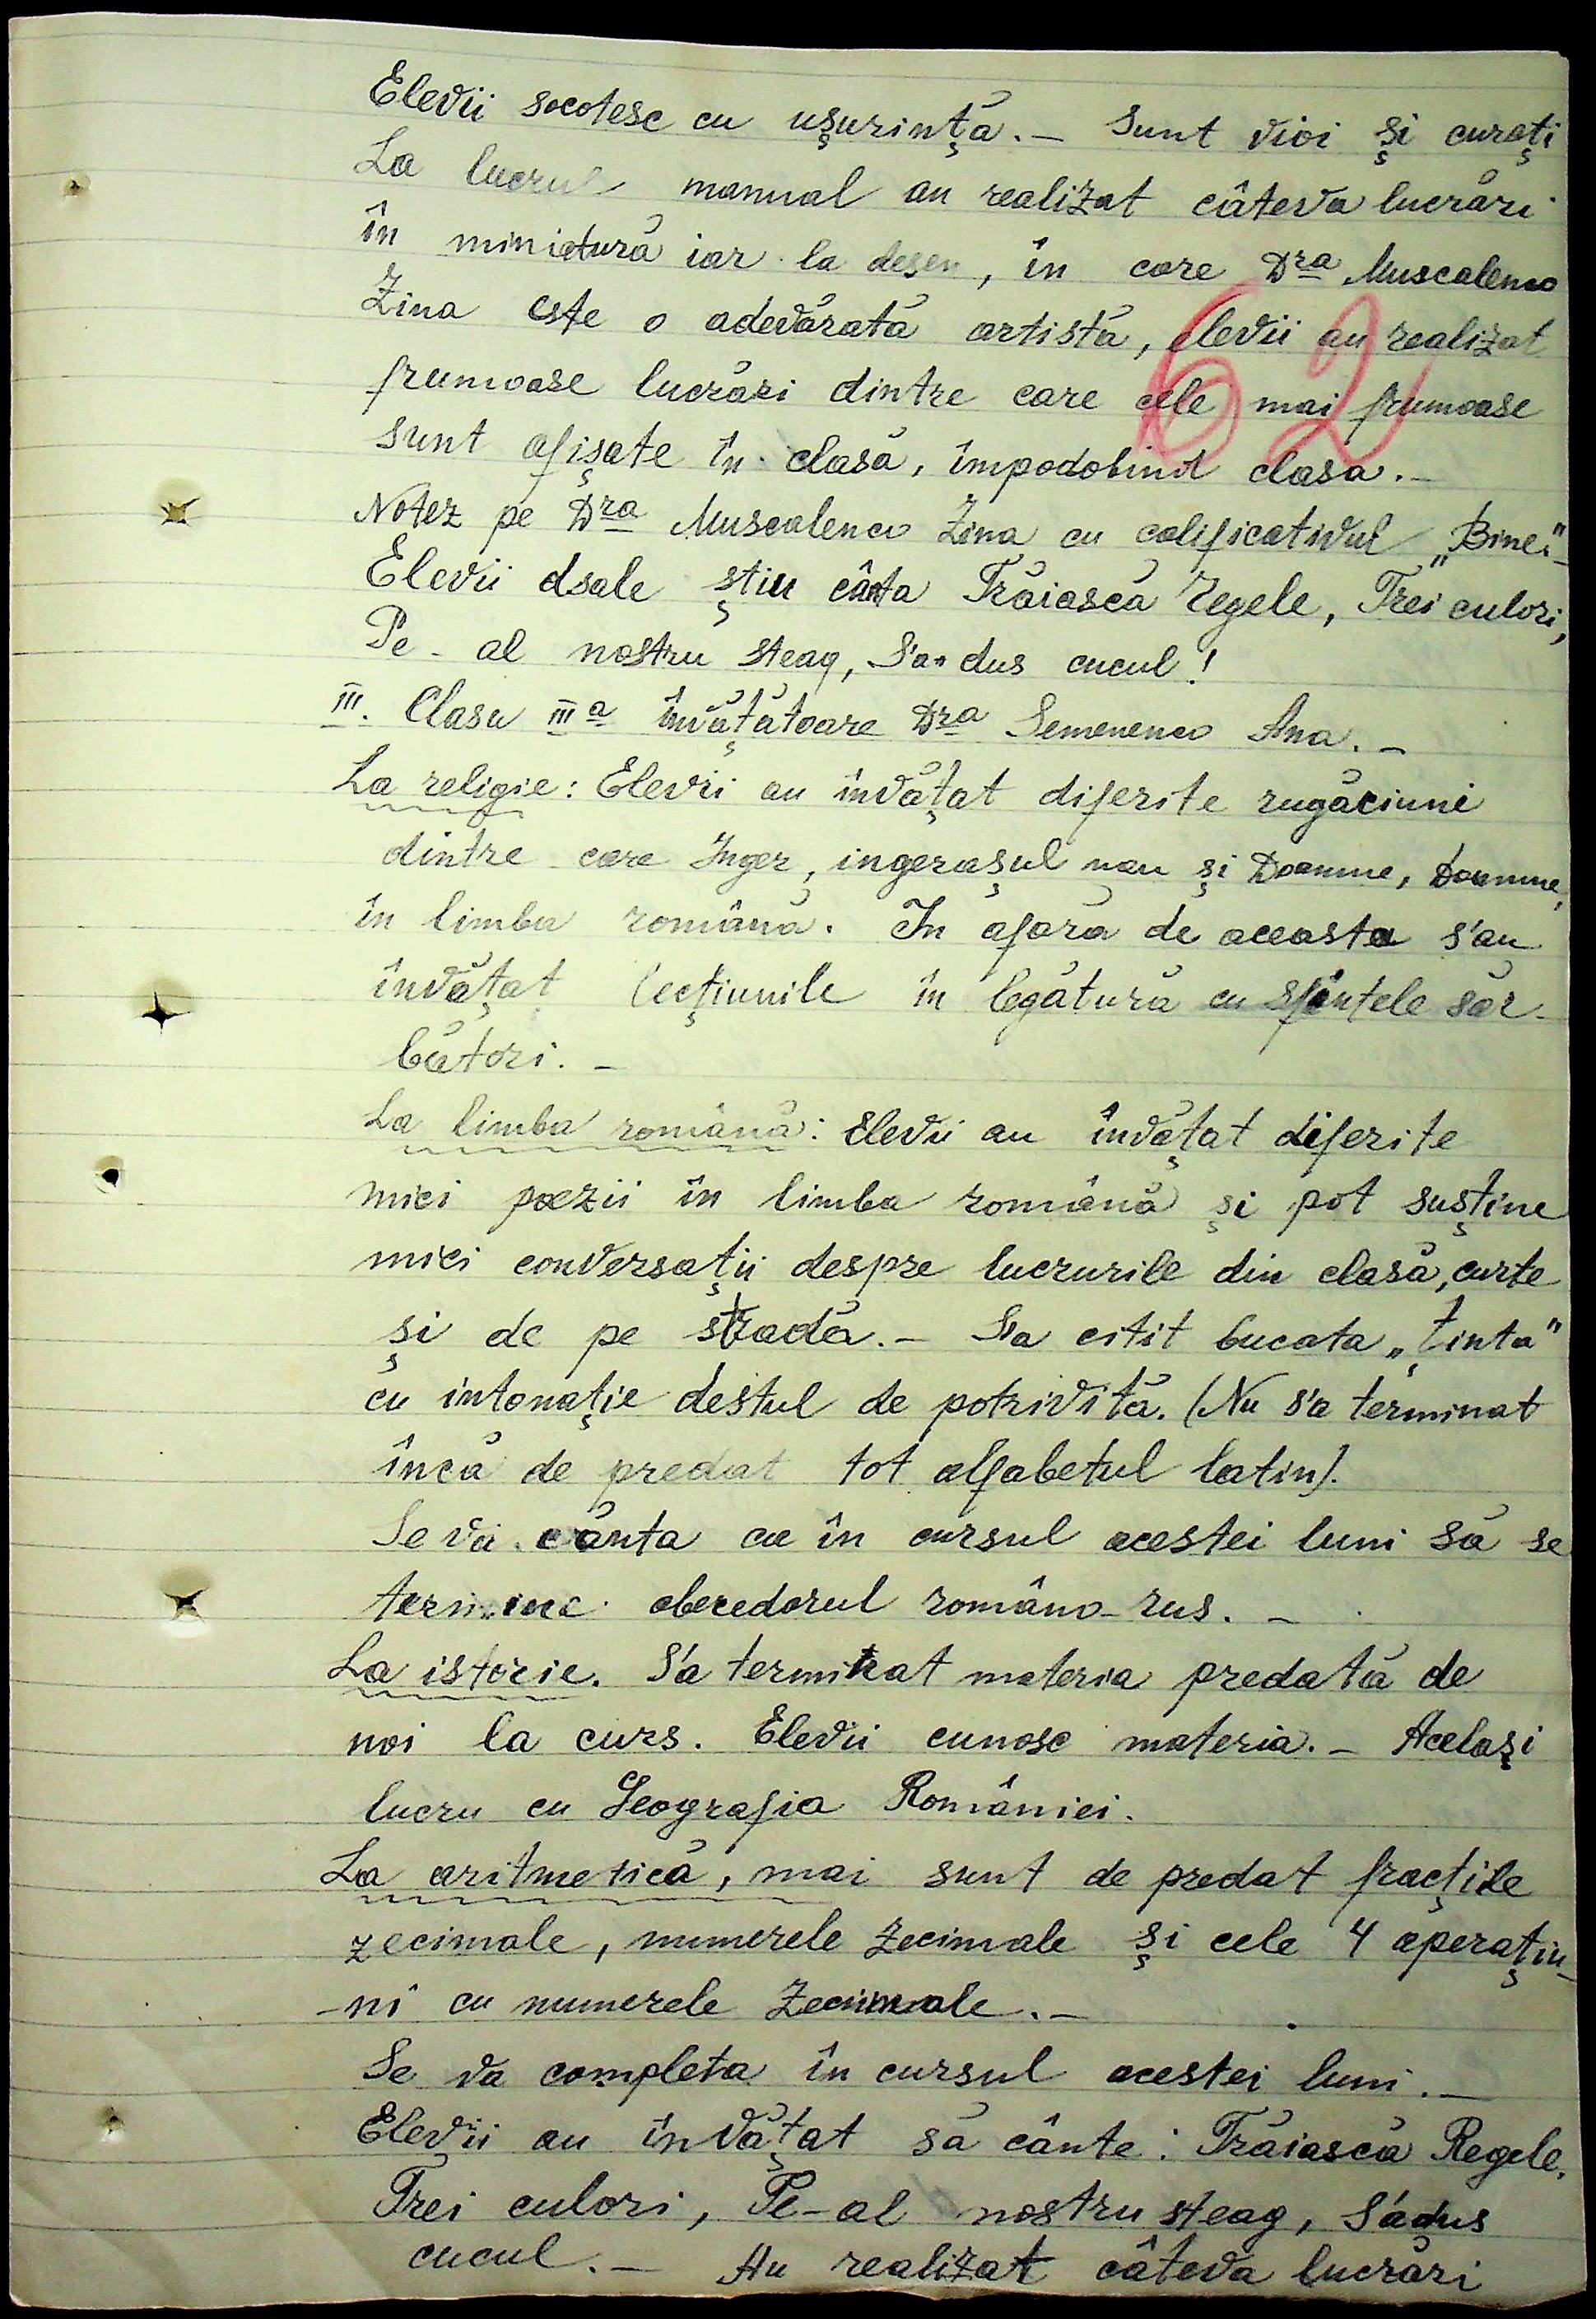 Elevii socotesc cu ușurință. – Sunt vioi și curați
La lucrul manual au realizat câteva lucrări
în miniatură iar la desen, în care Dra Muscalenco
Zina este o adevărată artistă, elevii au realizat
62
frumoase lucrări dintre care cele mai frumoase
sunt afișate în clasă, împodobind clasa. –
Notez pe Dra Muscalenco Zina cu calificativul „Bine"–
Elevii dsale știu cânta Trăiască Regele, Trei culori,
Pe - al nostru steag, S'a dus cucul!
III. Clasa III a învățătoare Dra Semenenco Ana. –
La religie: Elevii au învățat diferite rugăciuni
dintre care Inger, ingerașul meu și Doamne, Doamne,
în limba română. In afara de aceasta s'au
învățat lecțiunile în legătură cu sfintele săr-
bători. –
La limba română: Elevii au învățat diferite
mici poezii în limba română și pot susține
mici conversații despre lucrurile din clasă, curte
și de pe stradă. – S'a citit bucata „Ținta"
cu intonație destul de potrivită. (Nu s'a terminat
încă de predat tot alfabetul latin).
Se va căuta ca în cursul acestei luni să se
termine abecedarul româno-rus. –
La istorie. S'a terminat materia predată de
noi la curs. Elevii cunosc materia. – Același
lucru cu Geografia României.
La aritmetică, mai sunt de predat fracțiile
zecimale, numerele zecimale și cele 4 operațiu-
-ni cu numerele zecimale. –
Se va completa în cursul acestei luni. –
Elevii au învățat să cânte: Trăiască Regele,
Trei culori, Pe-al nostru steag, S'a dus
cucul. – Au realizat câteva lucrări